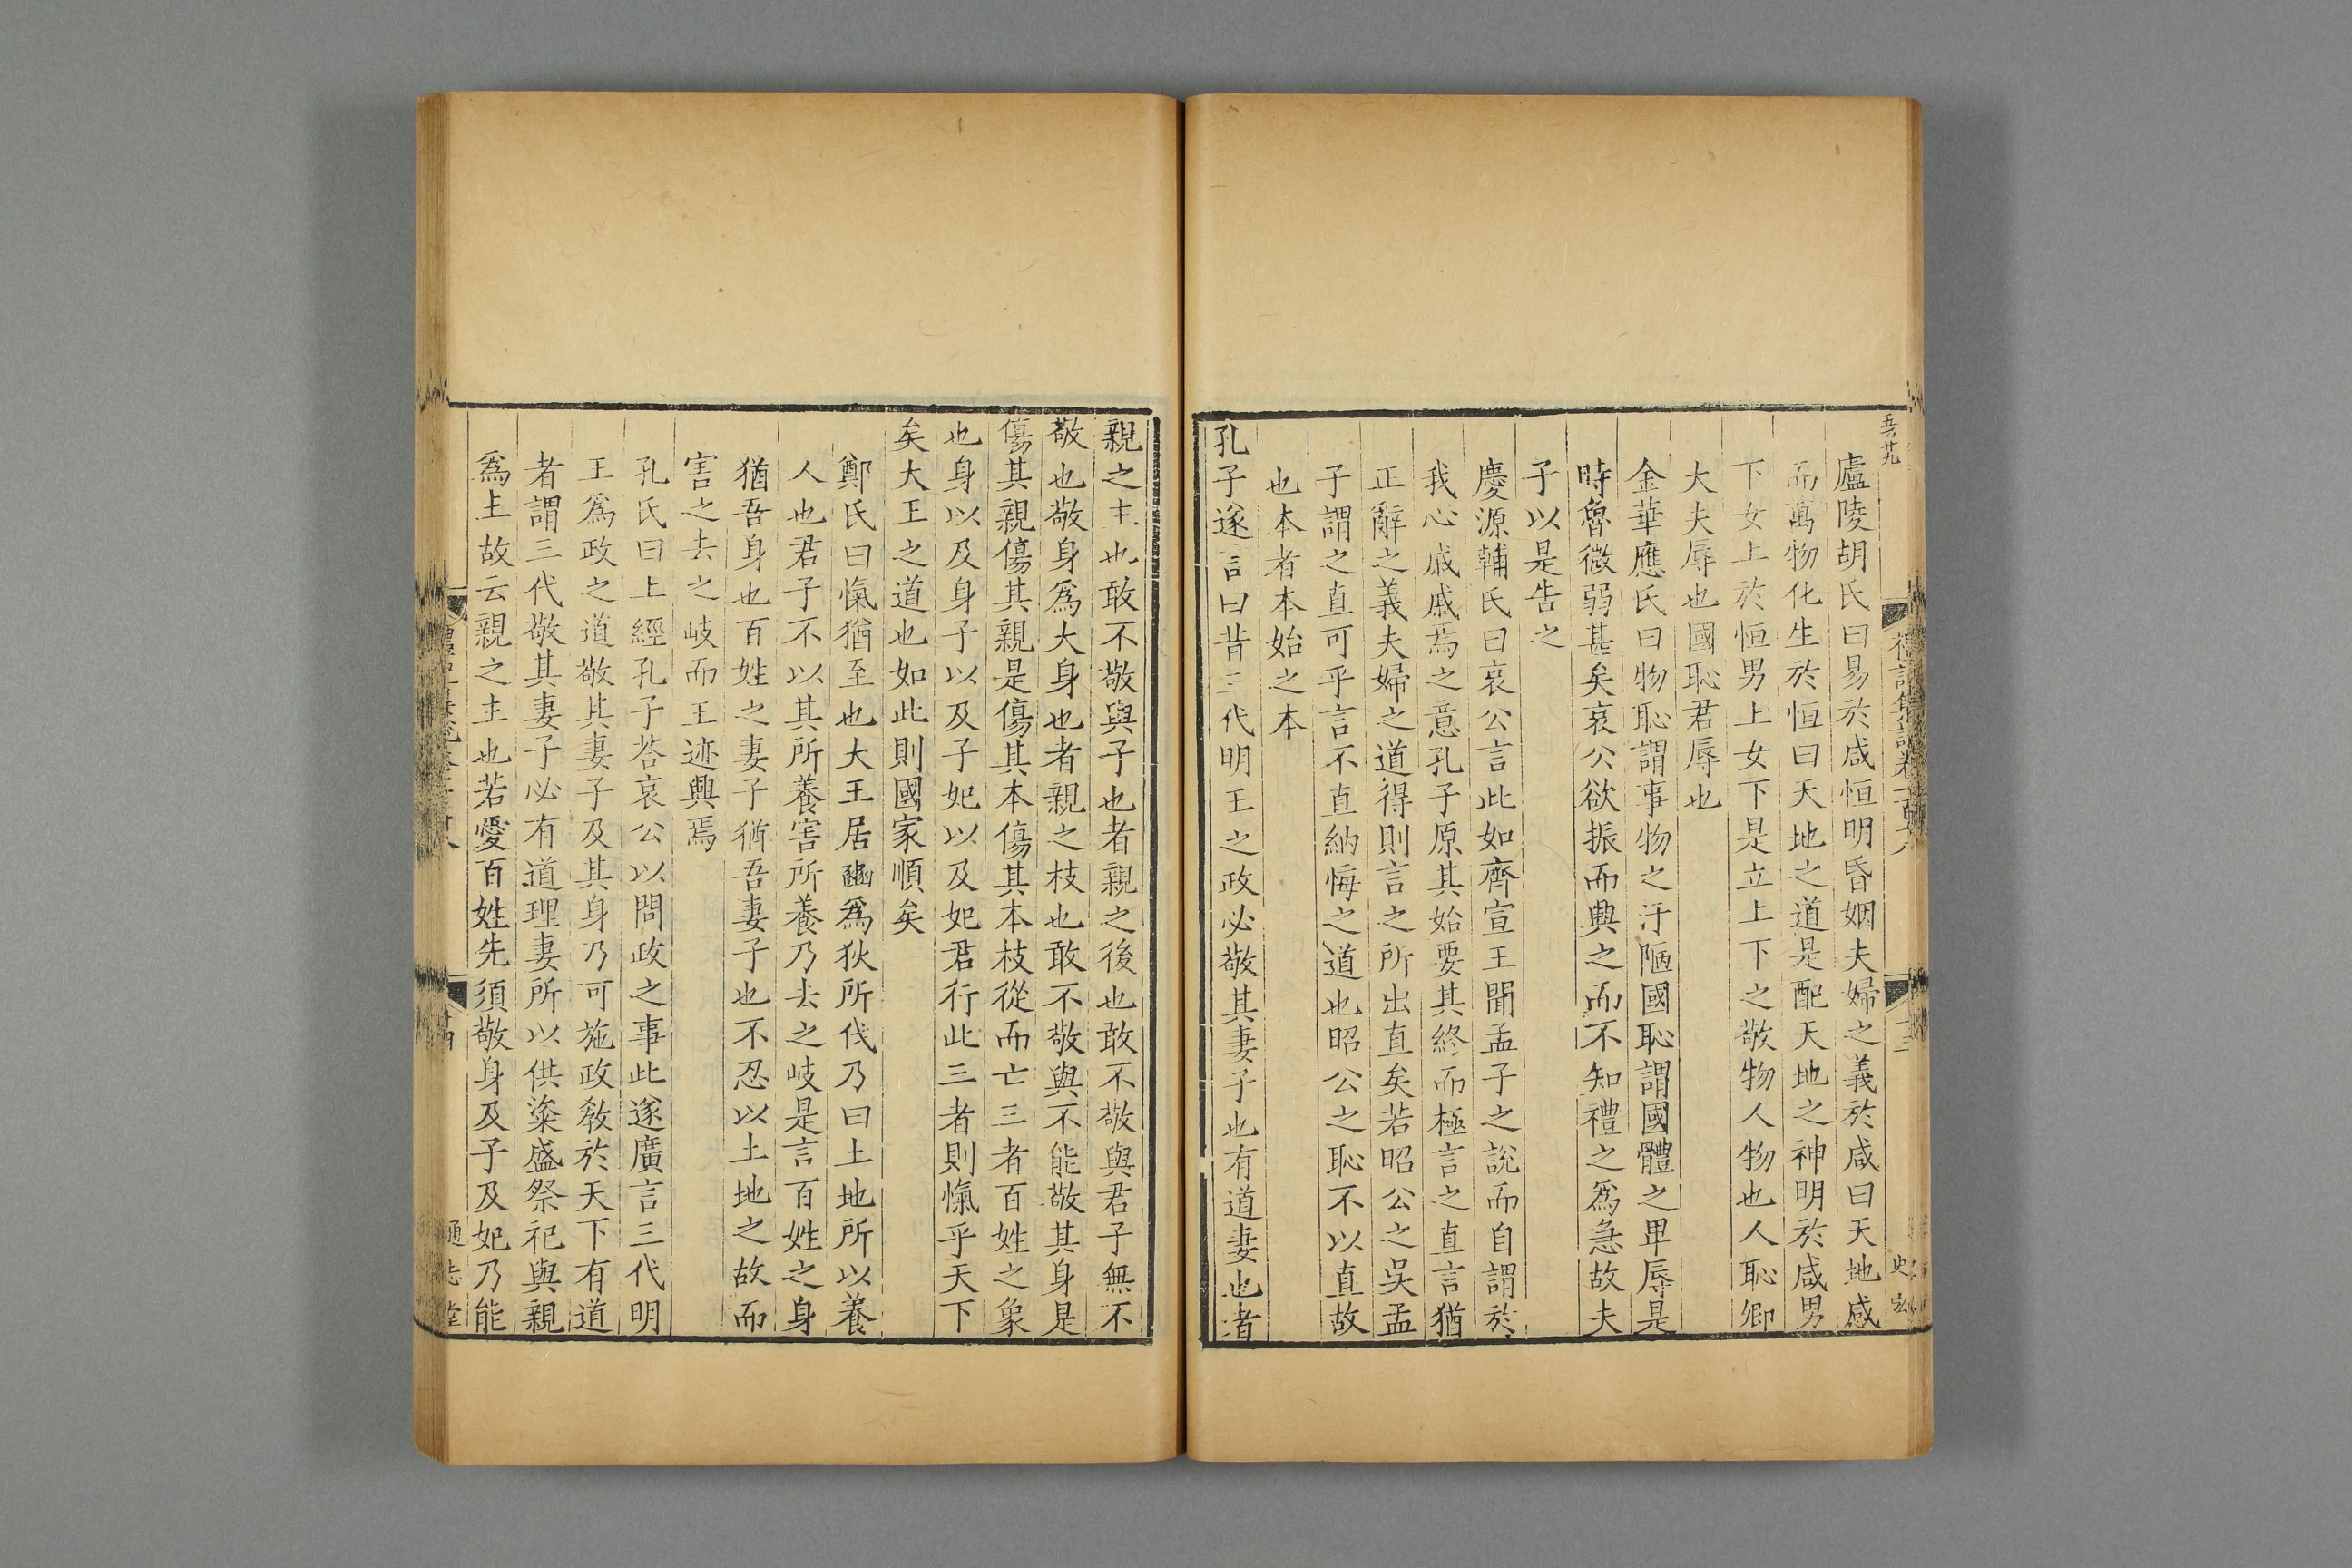 盧陵胡氏曰易於咸恒明昏姻夫婦之義於咸曰天地感
而萬物化生於恒曰天地之道是配天地之神明於咸男
下女上於恒男上女下是立上下之敬物人物也人恥卿
大夫辱也國恥君辱也
金華應氏曰物恥謂事物之汙陋國恥謂國體之卑辱是
時魯微弱甚矣哀公欲振而興之而不知禮之爲急故夫
子以是告之
慶源輔氏曰哀公言此如齊宣王聞孟子之說而自謂於
我心戚戚焉之意孔子原其始要其終而極言之直言猶
正辭之義夫婦之道得則言之所出直矣若昭公之吳孟
子謂之直可乎言不直納悔之道也昭公之恥不以直故
也本者本始之本
孔子遂言曰昔三代明王之政必敬其妻子也有道妻也者
親之主也敢不敬與子也者親之後也敢不敬與君子無不
敬也敬身爲大身也者親之枝也敢不敬與不能敬其身是
傷其親傷其親是傷其本傷其本枝從而亡三者百姓之象
也身以及身子以及子妃以及妃君行此三者則愾乎天下
矣大王之道也如此則國家順矣
鄭氏曰愾猶至也大王居豳爲狄所伐乃曰土地所以養
人也君子不以其所養害所養乃去之岐是言百姓之身
猶吾身也百姓之妻子猶吾妻子也不忍以土地之故而
害之去之岐而王迹興焉
孔氏曰上經孔子荅哀公以問政之事此遂廣言三代明
王爲政之道敬其妻子及其身乃可施政敎於天下有道
者謂三代敬其妻子必有道理妻所以供粢盛祭祀與親
爲主故云親之主也若愛百姓先須敬身及子及妃乃能